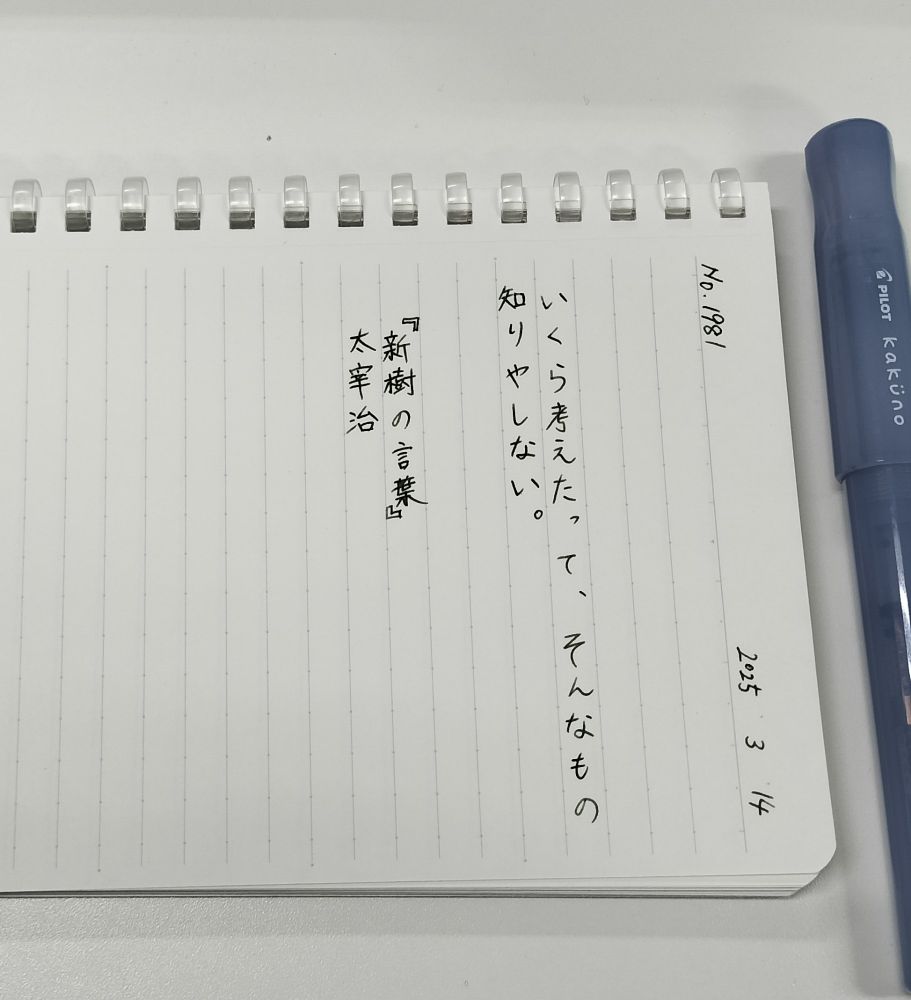 No. 1981
2025 3 14
いくら考えたって、そんなもの
知りやしない。
『新樹の言葉』
太宰治
PILOT
kaküno